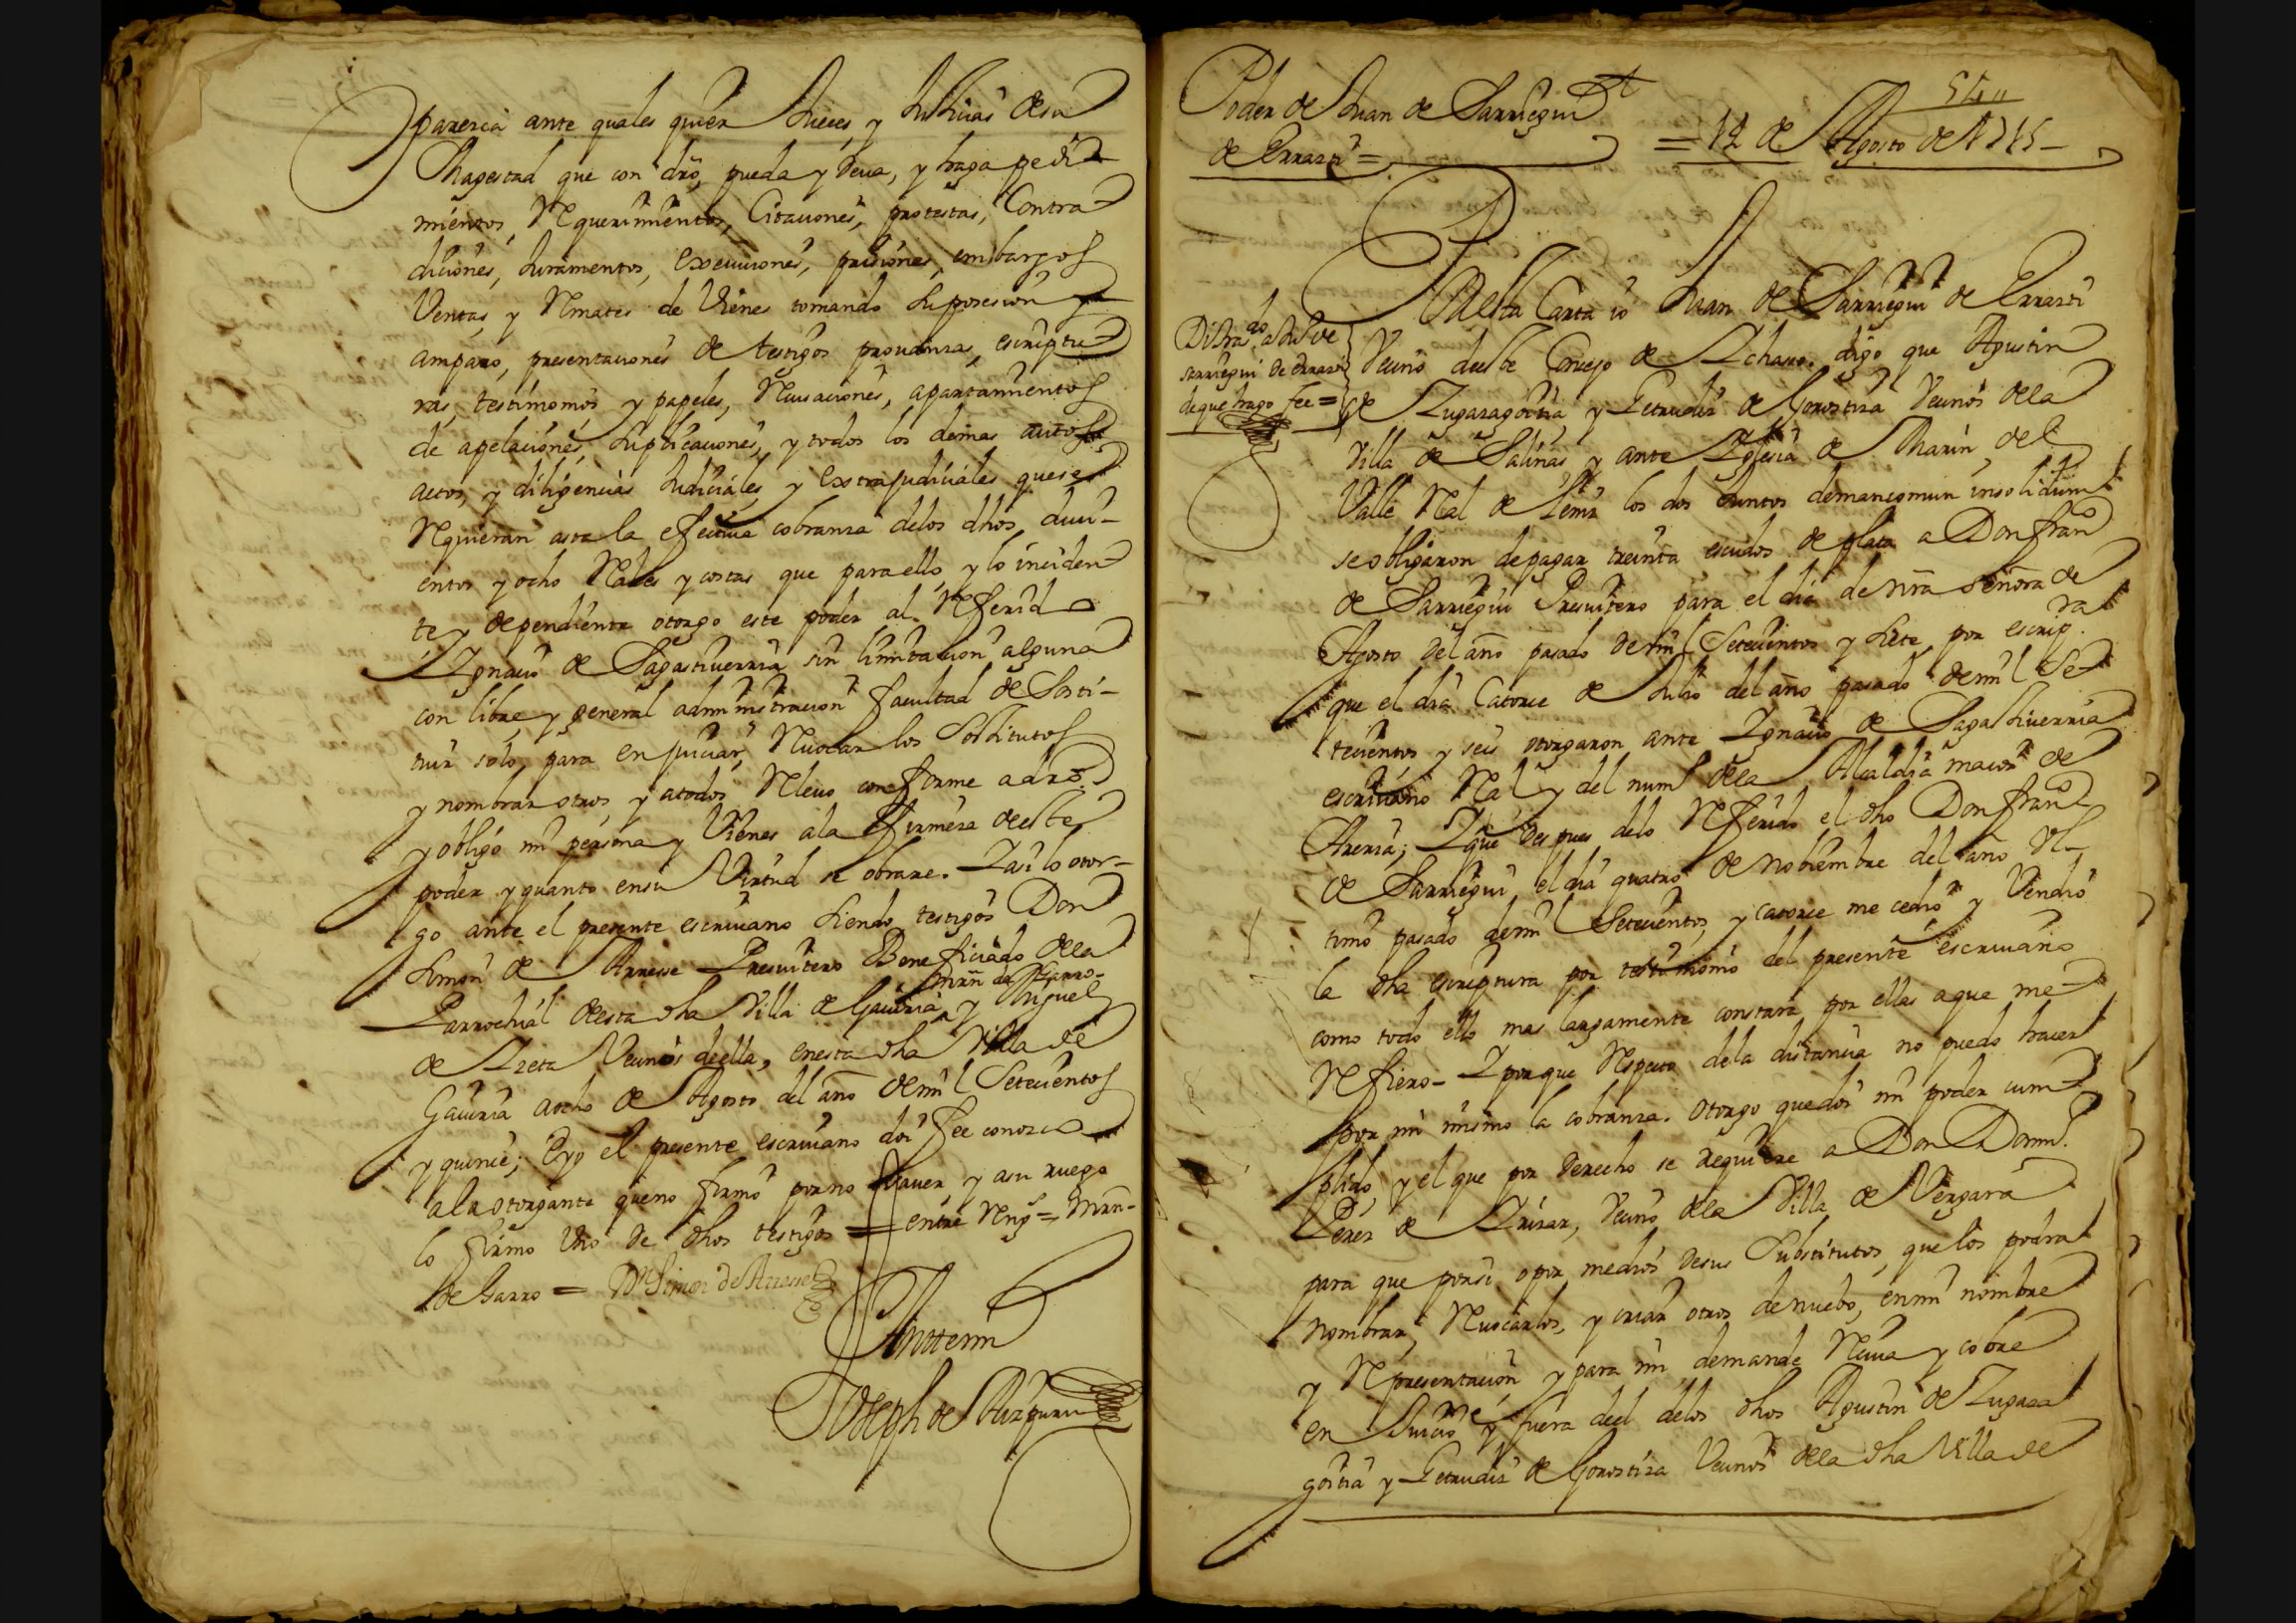 Y parezca ante quales quier Juezes y Justicias de su
Magestad que con dro pueda y deua, y haga pedi-
mientos, Requerimientos, Citaciones, protestas, Contra-
diciones, Juramentos, Execuciones, prisiones, embargos
Ventas, y Remates de Vienes tomando su posesion y
amparo, presentaciones de testigos prouanzas, escriptu-
ras, testimonios y papeles, Recusaciones, apartamientos
de apelaciones, suplicaciones, y todos los demas autos
actos, y diligencias Judiciales y Extrajudiciales que se
Requieran asta la efectiua cobranza delos dhos duci-
entos y ocho Reales y costas que para ello, y lo inciden-
te, y dependiente otorgo este poder al Referido
Ygnacio de Sagastiuerria sin limitacion alguna
con libre, y general administracion facultad de Sosti-
tuir solo, para en juiciar, Reuocar los Sostitutos
y nombrar otros y atodos Relevo conforme a dro.
y obligo mi persona y Vienes ala firmeza de este
poder y quanto ensu Virtud se obrare. Y asi lo otor-
go ante el presente escriuano siendo testigos Don
Simon de Arresse Presuitero Beneficiado dela
Mrn de Garro-
Parrochial desta dha Villa de Gauiria, y Miguel
de Yzeta Vecinos de ella, en esta dha Villa de
Gauiria a ocho de Agosto del año de mil Setecientos
y quince; E yo el presente escriuano doi fee conozco
ala otorgante que no firmo por no Sauer y asu ruego
lo firmo Uno de dhos testigos = entre Reng.s = Mrn-
de Garro = Dn Simon de Arresse
Antte mi
Joseph de Aizpuru
Poder de Juan de Sarriegui
de Errazti =
= 12 de Agosto de 1715 -
Juan de Sarriegui de Errazti
de que hago fee =
Vecino de este Concejo de Ychaso. digo que Agustin
de Zugaragoitia, y Getrudis de Gorostiza Vecinos dela
Villa de Salinas y ante Yglesia de Marin, del
Valle Real de Leniz los dos Juntos demancomun insolidum
se obligaron de pagar treinta escudos de plata a Don Franco
de Sarriegui Presuitero para el dia de nra Señora de
Agosto del año pasado de mil Setecientos y Siete por escrip.ra
que el dia Catorce de Julio del año pasado de mil Se-
tecientos y seis otorgaron ante Ygnacio de Sagastiuerria
escriuano Real y del num.o dela Alcaldia maior de
Areria; Y que despues delo Referido el dho Don Franco
de Sarriegui, el dia quatro de Nobiembre del año Ul-
timo pasado de mil Setecientos, y catorce me cedio y Vendio
la dha escriptura por testimonio del presente escriuano
como todo ello mas largamente constara por ellas a que me
Refiero- Y porque Respecto dela distancia no puedo hacer
por mi mismo la cobranza. Otorgo que doi mi poder cum-
plido, y el que por derecho se requiere a Don Domin.o
Perez de Yrizar, Vecino dela Villa de Vergara
para que porsi o por medios desus Substitutos, que los podra
nombrar, Reuocarlos, y criar otros de nuebo, en mi nombre
y Representacion, y para mi demande Reciua y cobre
en Juicio y fuera de el delos dhos Agustin de Zugara-
goitia y Getrudis de Gorostiza Vecinos dela dha Villa de